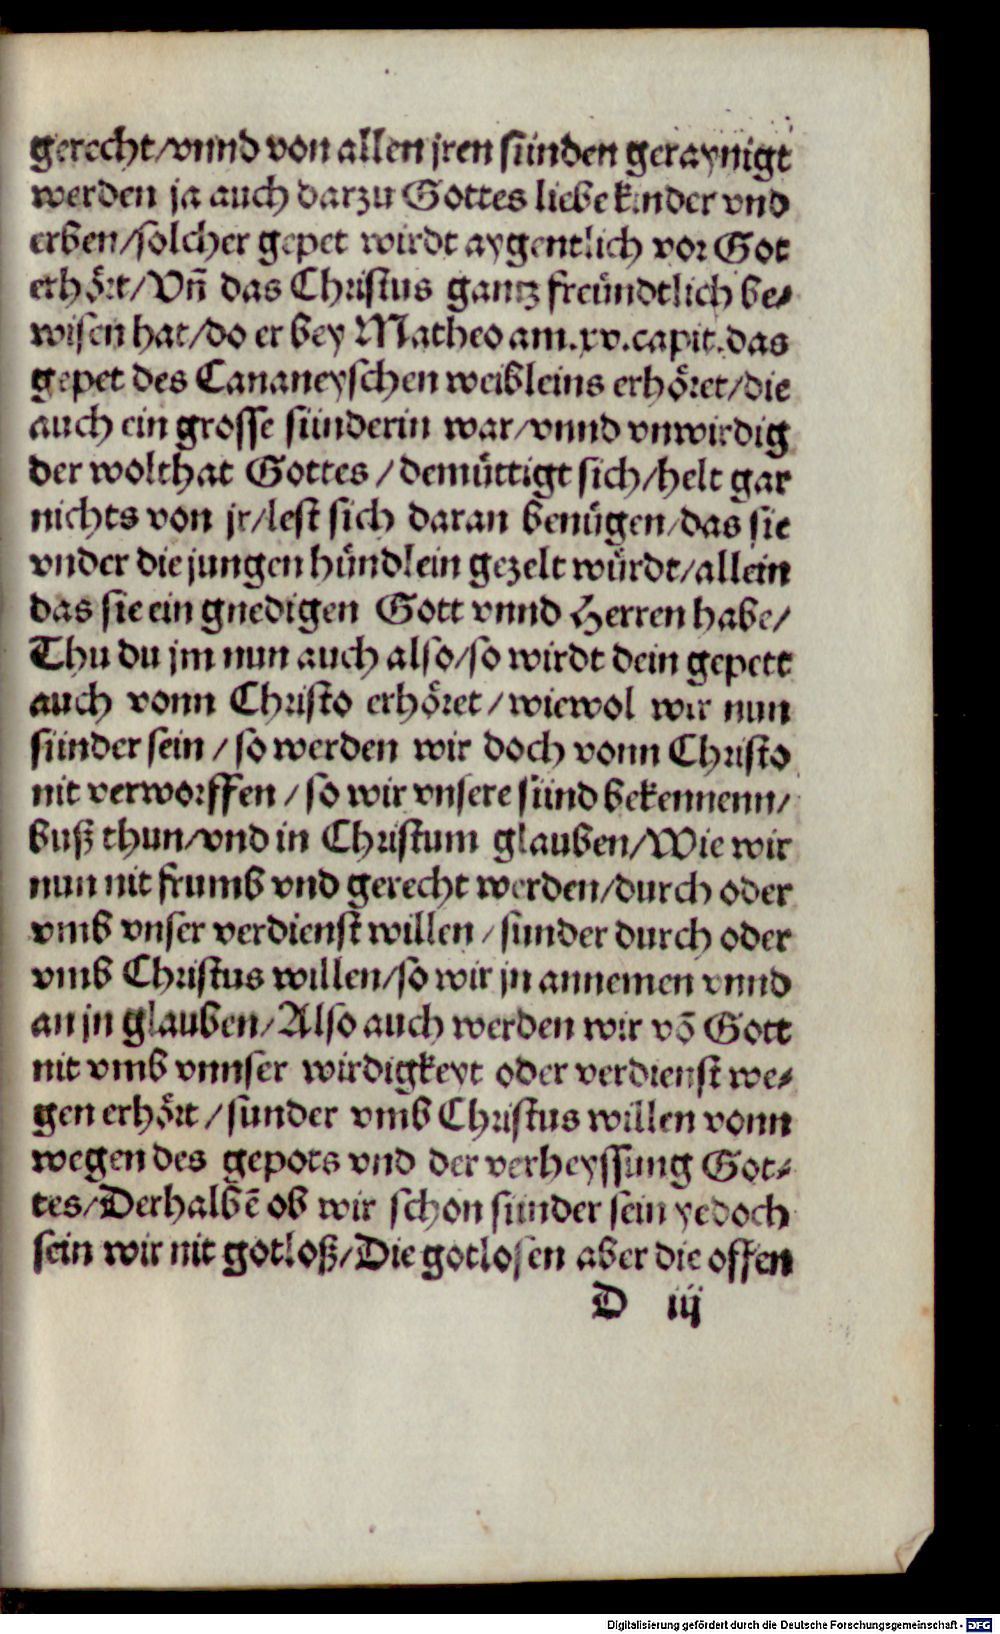 gerecht/vnnd von allen jren sünden geraynigt
werden ja auch darzu Gottes liebe kinder vnd
erben/solcher gepet wirdt aygentlich vor Got
erhört/Vn̄ das Christus gantz freündtlich be⸗
wisen hat/do er bey Matheo am.xv.capit.das
gepet des Cananeyschen weibleins erhöret/die
auch ein grosse sünderin war/vnnd vnwirdig
der wolthat Gottes / demüttigt sich/helt gar
nichts von jr/lest sich daran benügen/das sie
vnder die jungen hündlein gezelt würdt/allein
das sie ein gnedigen Gott vnnd Herren habe/
Thu du jm nun auch also/so wirdt dein gepett
auch vonn Christo erhöret/wiewol wir nun
sünder sein / so werden wir doch vonn Christo
nit verworffen / so wir vnsere sünd bekennenn/
buß thun/vnd in Christum glauben/Wie wir
nun nit frumb vnd gerecht werden/durch oder
vmb vnser verdienst willen / sunder durch oder
vmb Christus willen/so wir jn annemen vnnd
an jn glauben/Also auch werden wir vō Gott
nit vmb vnnser wirdigkeyt oder verdienst we⸗
gen erhört / sunder vmb Christus willen vonn
wegen des gepots vnd der verheyssung Got⸗
tes/Derhalbē ob wir schon sünder sein yedoch
sein wir nit gotloß/Die gotlosen aber die offen
D iij
Digitalisierung gefördert durch die Deutsche Forschungsgemeinschaft - DFG